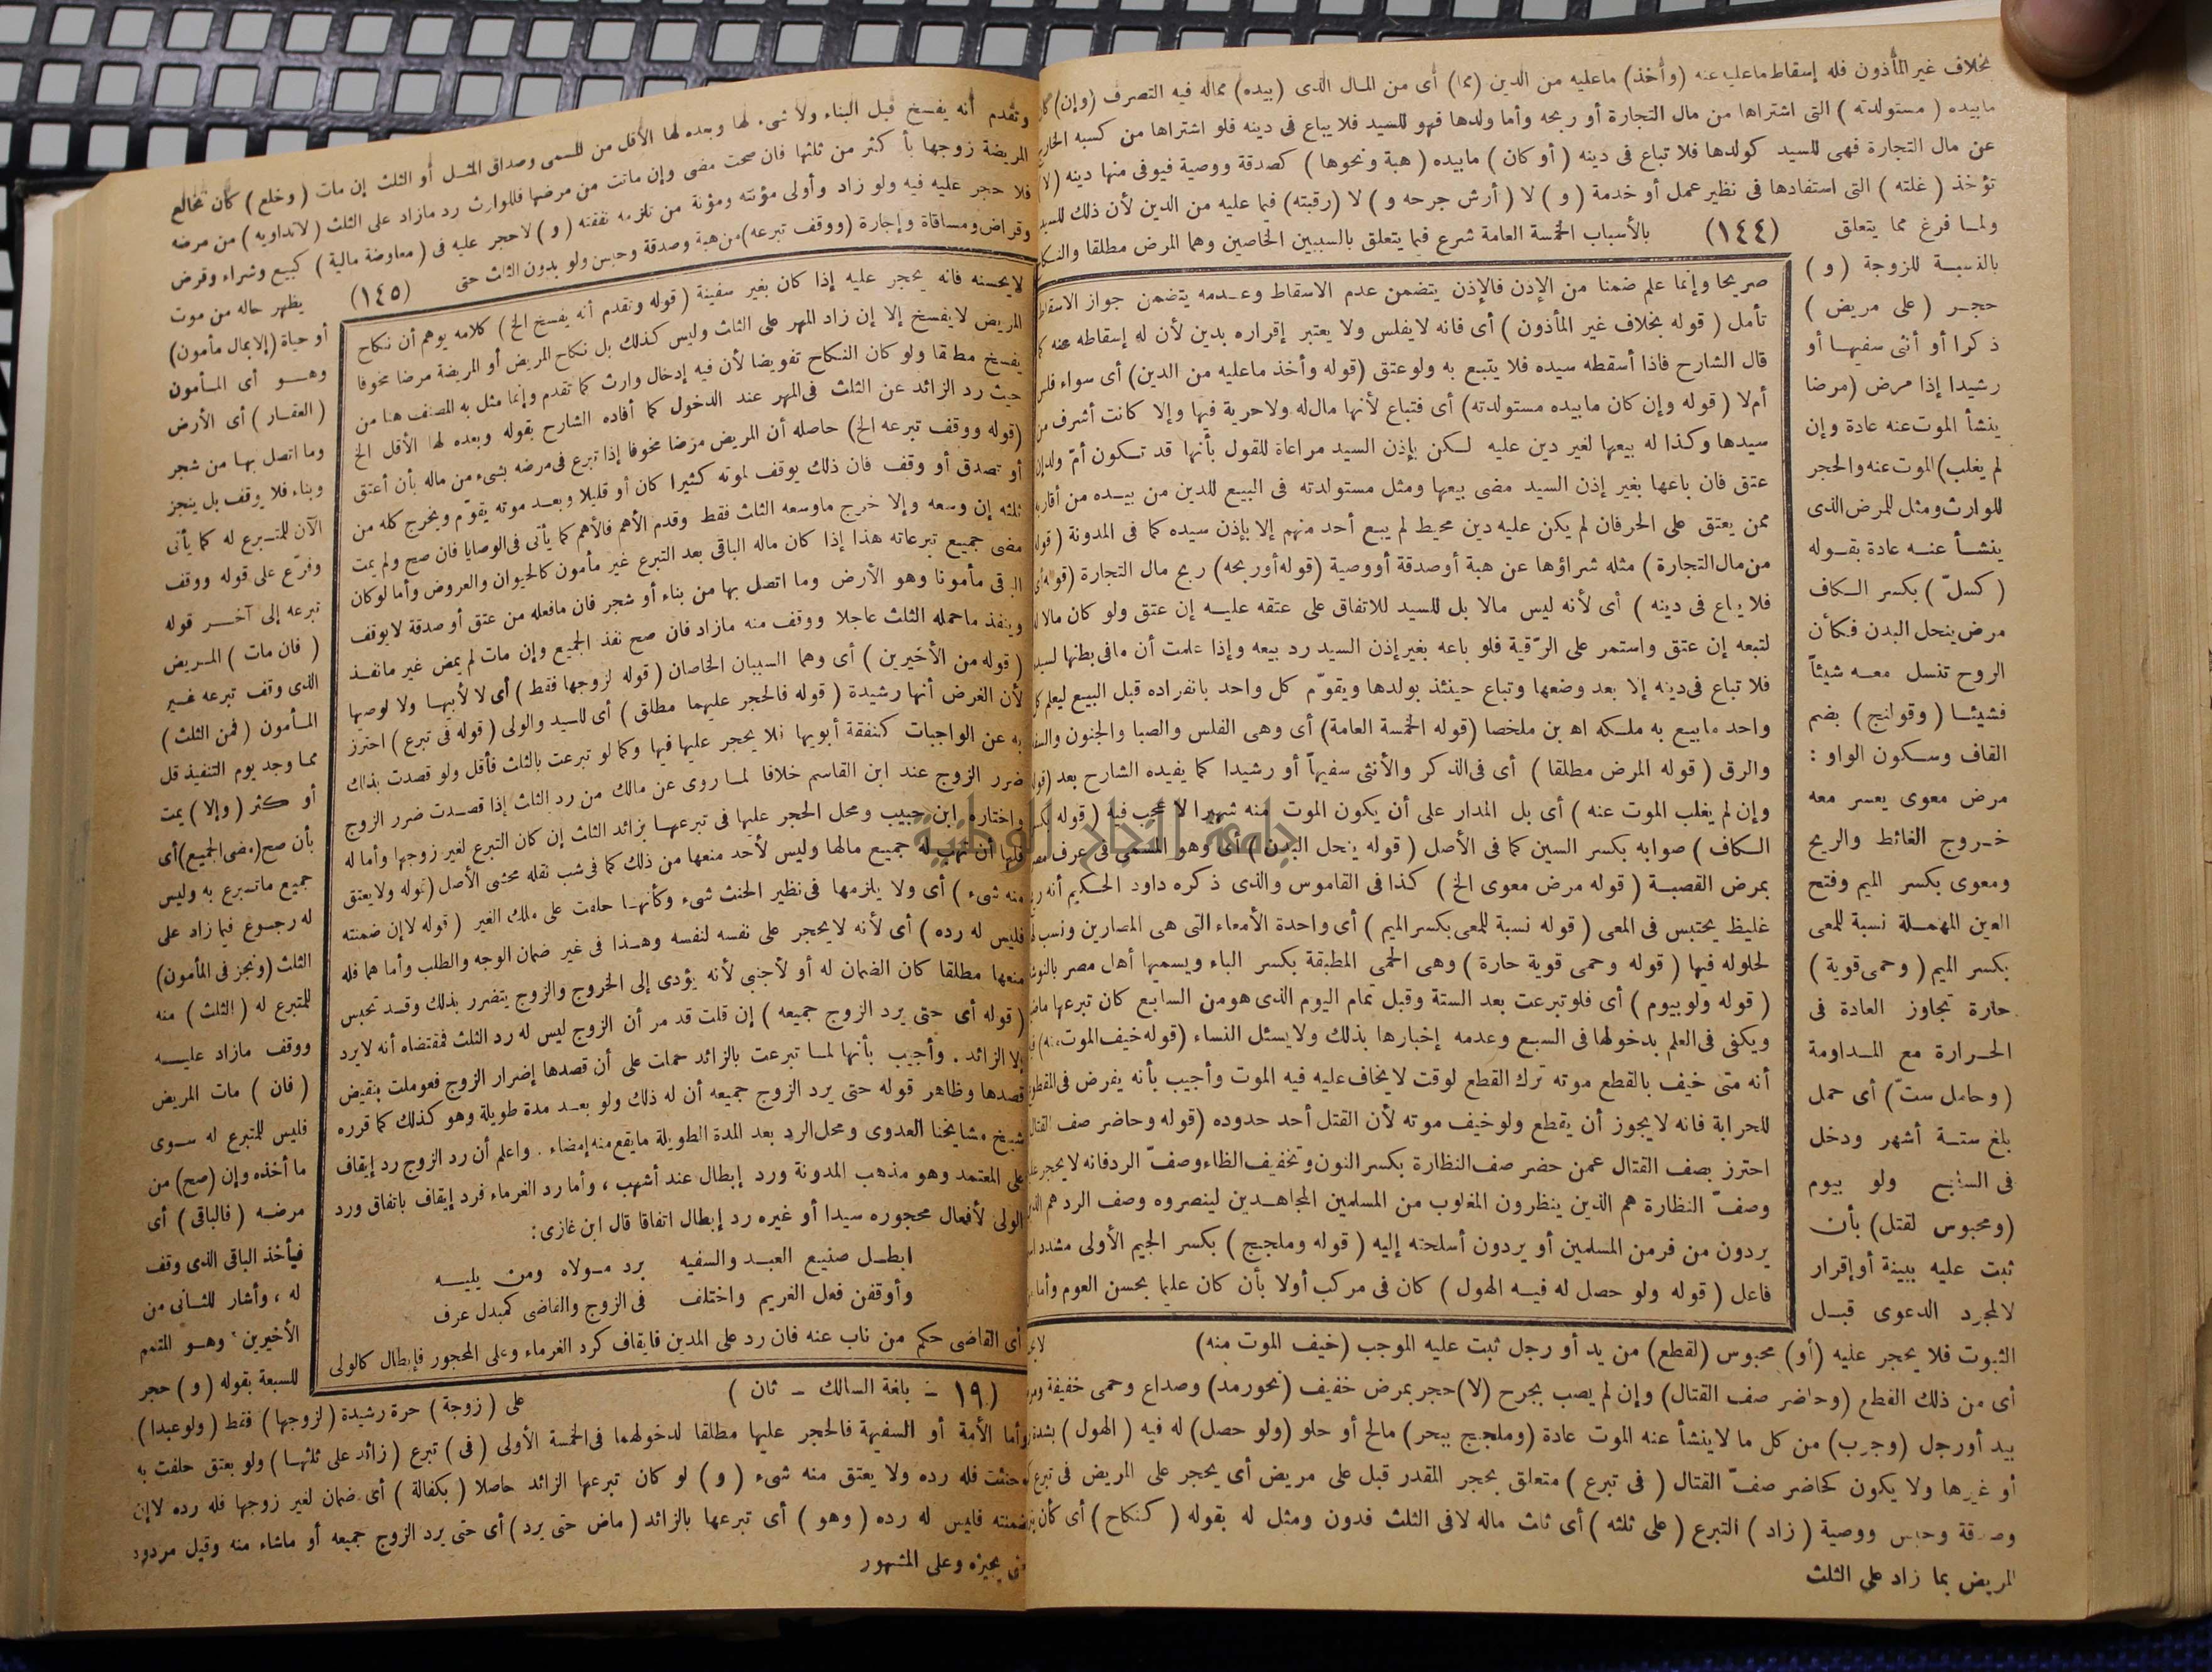 بخلاف غير المأذون فله إسقاط ماعليه عنه (وأخذ) ماعليه من الدين (مما) أى من المال الذى (بيده) مماله فيه التصرف (وإن)
مابيده (مستولدته) التى اشتراها من مال التجارة أو ربحه وأما ولدها فهو للسيد فلا يباع فى دينه فلو اشتراها من كسبه
عن مال التجارة فهى للسيد كولدها فلا تباع فى دينه (أو كان) مابيده (هبة ونحوها) كصدقة ووصية فيوفى منها دينه (لا
تؤخذ (غلته) التى استفادها فى نظير عمل أو خدمة (و) لا (أرش جرحه و) لا (رقبته) فيما عليه من الدين لأن ذلك للسيد
ولما فرغ مما يتعلق (١٤٤) بالأسباب الخمسة العامة شرع فيما يتعلق بالسببين الخاصين وهما المرض مطلقا
بالنسبة للزوجة (و)
حجر (على مريض)
ذكرا أو أنثى سفيها أو
رشيدا إذا مرض (مرضا
ينشأ الموت عنه عادة وإن
لم يغلب) الموت عنه والحجر
للوارث ومثل للمرض الذى
ينشأ عنه عادة بقوله
(كسلّ) بكسر الكاف
مرض ينحل البدن فكأن
الروح تنسل معه شيئاً
فشيئا (وقولنج) بضم
القاف وسكون الواو :
مرض معوى يعسر معه
خروج الغائط والريح
ومعوى بكسر الميم وفتح
العين المهملة نسبة للمعى
بكسر الميم (وحمى قوية)
حارة تجاوز العادة فى
الحرارة مع المداومة
(وحامل ستّ) أى حمل
بلغ ستة أشهر ودخل
فى السابع ولو بيوم
(ومحبوس لقتل) بأن
ثبت عليه ببينة أو إقرار
لالمجرد الدعوى قبل
صريحا وإنما علم ضمنا من الإذن فالإذن يتضمن عدم الاسقاط وعدمه يتضمن جواز الاسقاط
تأمل (قوله بخلاف غير المأذون) أى فانه لايفلس ولا يعتبر إقراره بدين لأن له إسقاطه عنه
قال الشارح فاذا أسقطه سيده فلا يتبع به ولو عتق (قوله وأخذ ماعليه من الدين) أى سواء فلس
أم لا (قوله وإن كان مابيده مستولدته) أى فتباع لأنها مال له ولاحرية فيها وإلا كانت أشرف من
سيدها وكذا له بيعها لغير دين عليه لكن بإذن السيد مراعاة للقول بأنها قد تكون أمّ ولد إن
عتق فان باعها بغير إذن السيد مضى بيعها ومثل مستولدته فى البيع للدين من بيده من أقاربه
ممن يعتق على الحر فان لم يكن عليه دين محيط لم يبع أحد منهم إلا بإذن سيده كما فى المدونة (قوله
من مال التجارة) مثله شراؤها عن هبة أو صدقة أو وصية (قوله أو ربحه) ربح مال التجارة
فلا يباع فى دينه) أى لأنه ليس مالا بل للسيد للاتفاق على عتقه عليه إن عتق ولو كان مالا
لتبعه إن عتق واستمر على الرّقية فلو باعه بغير إذن السيد رد بيعه وإذا علمت أن مافى بطنها لسيده
فلا تباع فى دينه إلا بعد وضعها وتباع حينئذ بولدها ويقوّم كل واحد بانفراده قبل البيع ليعلم كل
واحد مابيع به ملكه اه بن ملخصا (قوله الخمسة العامة) أى وهى الفلس والصبا والجنون
والرق (قوله المرض مطلقا) أى فى الذكر والأنثى سفيهاً أو رشيدا كما يفيده الشارح بعد
وإن لم يغلب الموت عنه) أى بل المدار على أن يكون الموت منه شهيرا لا يعجب فيه (قوله
الكاف) صوابه بكسر السين كما فى الأصل (قوله ينحل البدن) أى وهو المسمى فى عرف
بمرض القصبة (قوله مرض معوى الخ) كذا فى القاموس والذى ذكره داود الحكيم أنه
غليظ يحتبس فى المعى (قوله نسبة للمعى بكسر الميم) أى واحدة الأمعاء التى هى المصارين ونسب
لحلوله فيها (قوله وحمى قوية حارة) وهى الحمى المطبقة بكسر الباء ويسميها أهل مصر
(قوله ولو بيوم) أى فلو تبرعت بعد الستة وقبل تمام اليوم الذى هو من السابع كان تبرعها
ويكفى فى العلم بدخولها فى السبع وعدمه إخبارها بذلك ولا يسئل النساء (قوله خيف الموت منه)
أنه متى خيف بالقطع موته ترك القطع لوقت لايخاف عليه فيه الموت وأجيب بأنه يفرض فى
للحرابة فانه لايجوز أن يقطع ولو خيف موته لأن القتل أحد حدوده (قوله وحاضر صف القتال
احترز بصف القتال عمن حضر صف النظارة بكسر النون وتخفيف الظاء وصفّ الرد فانه لايحجر
وصفّ النظارة هم الذين ينظرون المغلوب من المسلمين المجاهدين لينصروه وصف الرد هم
يردون من فر من المسلمين أو يردون أسلحته إليه (قوله وملجج) بكسر الجيم الأولى مشددا
فاعل (قوله ولو حصل له فيه الهول) كان فى مركب أولا بأن كان عليما بحسن العوم
الثبوت فلا يحجر عليه (أو) محبوس (لقطع) من يد أو رجل ثبت عليه الموجب (خيف الموت منه)
أى من ذلك القطع (وحاضر صف القتال) وإن لم يصب بجرح (لا) حجر بمرض خفيف (نحو رمد) وصداع وحمى خفيفة
بيد أو رجل (وجرب) من كل ما لاينشأ عنه الموت عادة (وملجج ببحر) مالح أو حلو (ولو حصل) له فيه (الهول) بشدة
أو غيرها ولا يكون كحاضر صفّ القتال (فى تبرع) متعلق بحجر المقدر قبل على مريض أى يحجر على المريض فى تبرع
وصدقة وحبس ووصية (زاد) التبرع (على ثلثه) أى ثلث ماله لافى الثلث فدون ومثل له بقوله (كنكاح) أى كأن
المريض بما زاد على الثلث
وتقدم أنه يفسخ قبل البناء ولا شىء لها وبعده لها الأقل من المسمى وصداق المثل أو الثلث إن مات (وخلع) كأن تخالع
المريضة زوجها بأكثر من ثلثها فان صحت مضى وإن ماتت من مرضها فللوارث رد مازاد على الثلث (لاتداويه) من مرضه
فلا حجر عليه فيه ولو زاد وأولى مؤنته ومؤنة من تلزمه نفقته (و) لاحجر عليه فى (معاوضة مالية) كبيع وشراء وقرض
وقراض ومساقاة وإجارة (ووقف تبرعه) من هبة وصدقة وحبس ولو بدون الثلث حتى (١٤٥)
يظهر حاله من موت
أو حياة (إلا بمال مأمون)
وهو أى المأمون
(العقار) أى الأرض
وما اتصل بها من شجر
وبناء فلا يوقف بل ينجز
الآن للمتبرع له كما يأتى
وفرّع على قوله ووقف
تبرعه إلى آخر قوله
(فان مات) المريض
الذى وقف تبرعه غير
المأمون (فمن الثلث)
مما وجد يوم التنفيذ قل
أو كثر (وإلا) يمت
بأن صح (مضى الجميع) أى
جميع ماتبرع به وليس
له رجوع فيما زاد على
الثلث (ونجز فى المأمون)
للمتبرع له (الثلث) منه
ووقف مازاد عليه
(فان) مات المريض
فليس للمتبرع له سوى
ما أخذه وإن (صح) من
مرضه (فالباقى) أى
فيأخذ الباقى الذى وقف
له ، وأشار للثانى من
الأخيرين وهو المتمم
للسبعة بقوله (و) حجر
لايحسنه فانه يحجر عليه إذا كان بغير سفينة (قوله وتقدم أنه يفسخ الخ) كلامه يوهم أن نكاح
المريض لايفسخ إلا إن زاد المهر على الثلث وليس كذلك بل نكاح المريض أو المريضة مرضا مخوفا
يفسخ مطلقا ولو كان النكاح تفويضا لأن فيه إدخال وارث كما تقدم وإنما مثل به المصنف هنا من
حيث رد الزائد عن الثلث فى المهر عند الدخول كما أفاده الشارح بقوله وبعده لها الأقل الخ
(قوله ووقف تبرعه الخ) حاصله أن المريض مرضا مخوفا إذا تبرع فى مرضه بشىء من ماله بأن أعتق
أو تصدق أو وقف فان ذلك يوقف لموته كثيرا كان أو قليلا وبعد موته يقوّم ويخرج كله من
ثلثه إن وسعه وإلا خرج ماوسعه الثلث فقط وقدم الأهم فالأهم كما يأتى فى الوصايا فان صح ولم يمت
مضى جميع تبرعاته هذا إذا كان ماله الباقى بعد التبرع غير مأمون كالحيوان والعروض وأما لو كان
الباقى مأمونا وهو الأرض وما اتصل بها من بناء أو شجر فان مافعله من عتق أو صدقة لايوقف
وينفذ ماحمله الثلث عاجلا ووقف منه مازاد فان صح نفذ الجميع وإن مات لم يمض غير مانفذ
(قوله من الأخيرين) أى وهما السببان الخاصان (قوله لزوجها فقط) أى لا لأبيها ولا لوصيها
لأن الغرض أنها رشيدة (قوله فالحجر عليهما مطلق) أى للسيد والولى (قوله فى تبرع) احترز
به عن الواجبات كنفقة أبويها فلا يحجر عليها فيها وكما لو تبرعت بالثلث فأقل ولو قصدت بذلك
ضرر الزوج عند ابن القاسم خلافا لما روى عن مالك من رد الثلث إذا قصدت ضرر الزوج
واختاره ابن حبيب ومحل الحجر عليها فى تبرعها بزائد الثلث إن كان التبرع لغير زوجها وأما له
فلها أن تهب له جميع مالها وليس لأحد منعها من ذلك كما فى شب نقله محشى الأصل (قوله ولا يعتق
منه شىء) أى ولا يلزمها فى نظير الحنث شىء وكأنها حلفت على ملك الغير (قوله لاإن ضمنته
فليس له رده) أى لأنه لايحجر على نفسه لنفسه وهذا فى غير ضمان الوجه والطلب وأما هما فله
منعها مطلقا كان الضمان له أو لأجنبى لأنه يؤدى إلى الخروج والزوج يتضرر بذلك وقد تحبس
(قوله أى حتى يرد الزوج جميعه) إن قلت قد مر أن الزوج ليس له رد الثلث فمقتضاه أنه لايرد
إلا الزائد . وأجيب بأنها لما تبرعت بالزائد حملت على أن قصدها إضرار الزوج فعوملت بنقيض
قصدها وظاهر قوله حتى يرد الزوج جميعه أن له ذلك ولو بعد مدة طويلة وهو كذلك كما قرره
شيخ مشايخنا العدوى ومحل الرد بعد المدة الطويلة مايقع منه إمضاء . واعلم أن رد الزوج رد إيقاف
على المعتمد وهو مذهب المدونة ورد إبطال عند أشهب ، وأما رد الغرماء فرد إيقاف باتفاق ورد
الولى لأفعال محجوره سيدا أو غيره رد إبطال اتفاقا قال ابن غازى :
ابطل صنيع العبد والسفيه برد مولاه ومن يليه
وأوقفن فعل الغريم واختلف فى الزوج والقاضى كمبدل عرف
أى القاضى حكم من ناب عنه فان رد على المدين فايقاف كرد الغرماء وعلى المحجور فإبطال كالولى
(١٩ - بلغة السالك - ثان)
على (زوجة) حرة رشيدة (لزوجها) فقط (ولو عبدا)
وأما الأمة أو السفيهة فالحجر عليها مطلقا لدخولهما فى الخمسة الأولى (فى) تبرع (زائد على ثلثها) ولو بعتق حلفت به
وحنثت فله رده ولا يعتق منه شىء (و) لو كان تبرعها الزائد حاصلا (بكفالة) أى ضمان لغير زوجها فله رده لاإن
ضمنته فليس له رده (وهو) أى تبرعها بالزائد (ماض حتى يرد) أى حتى يرد الزوج جميعه أو ماشاء منه وقيل مردود
حتى يجيزه وعلى المشهور
جامعة النجاح الوطنية